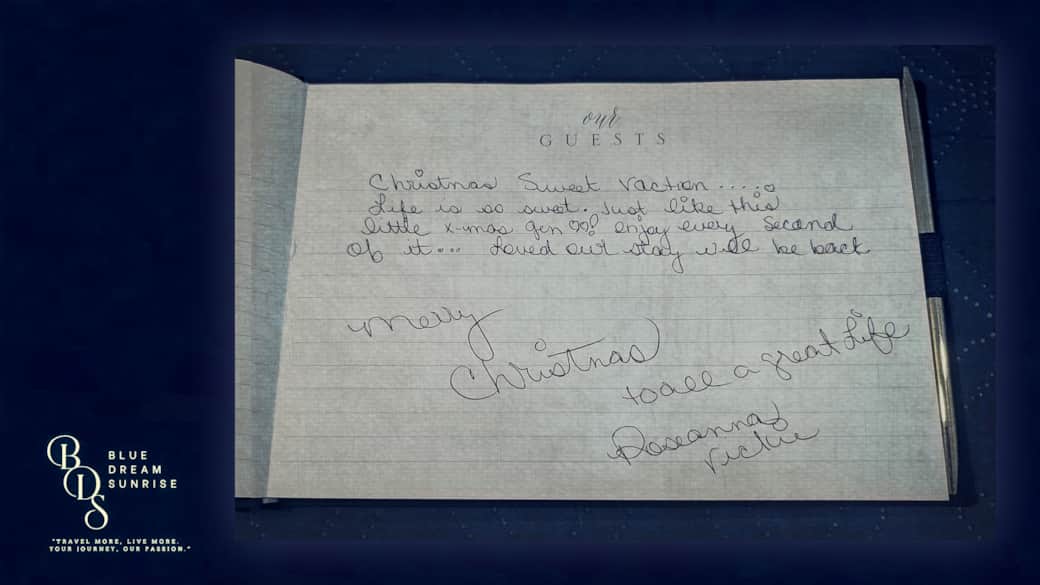 our
GUESTS
Christmas Sweet Vaction.....
Life is so swet. Just like this
little x-mas gen ♡♡! enjoy every second
of it... Loved our stay will be back
Merry
Christmas
to all a great Life
Roseanna
Vickie
BDS
BLUE
DREAM
SUNRISE
"TRAVEL MORE, LIVE MORE.
YOUR JOURNEY, OUR PASSION."